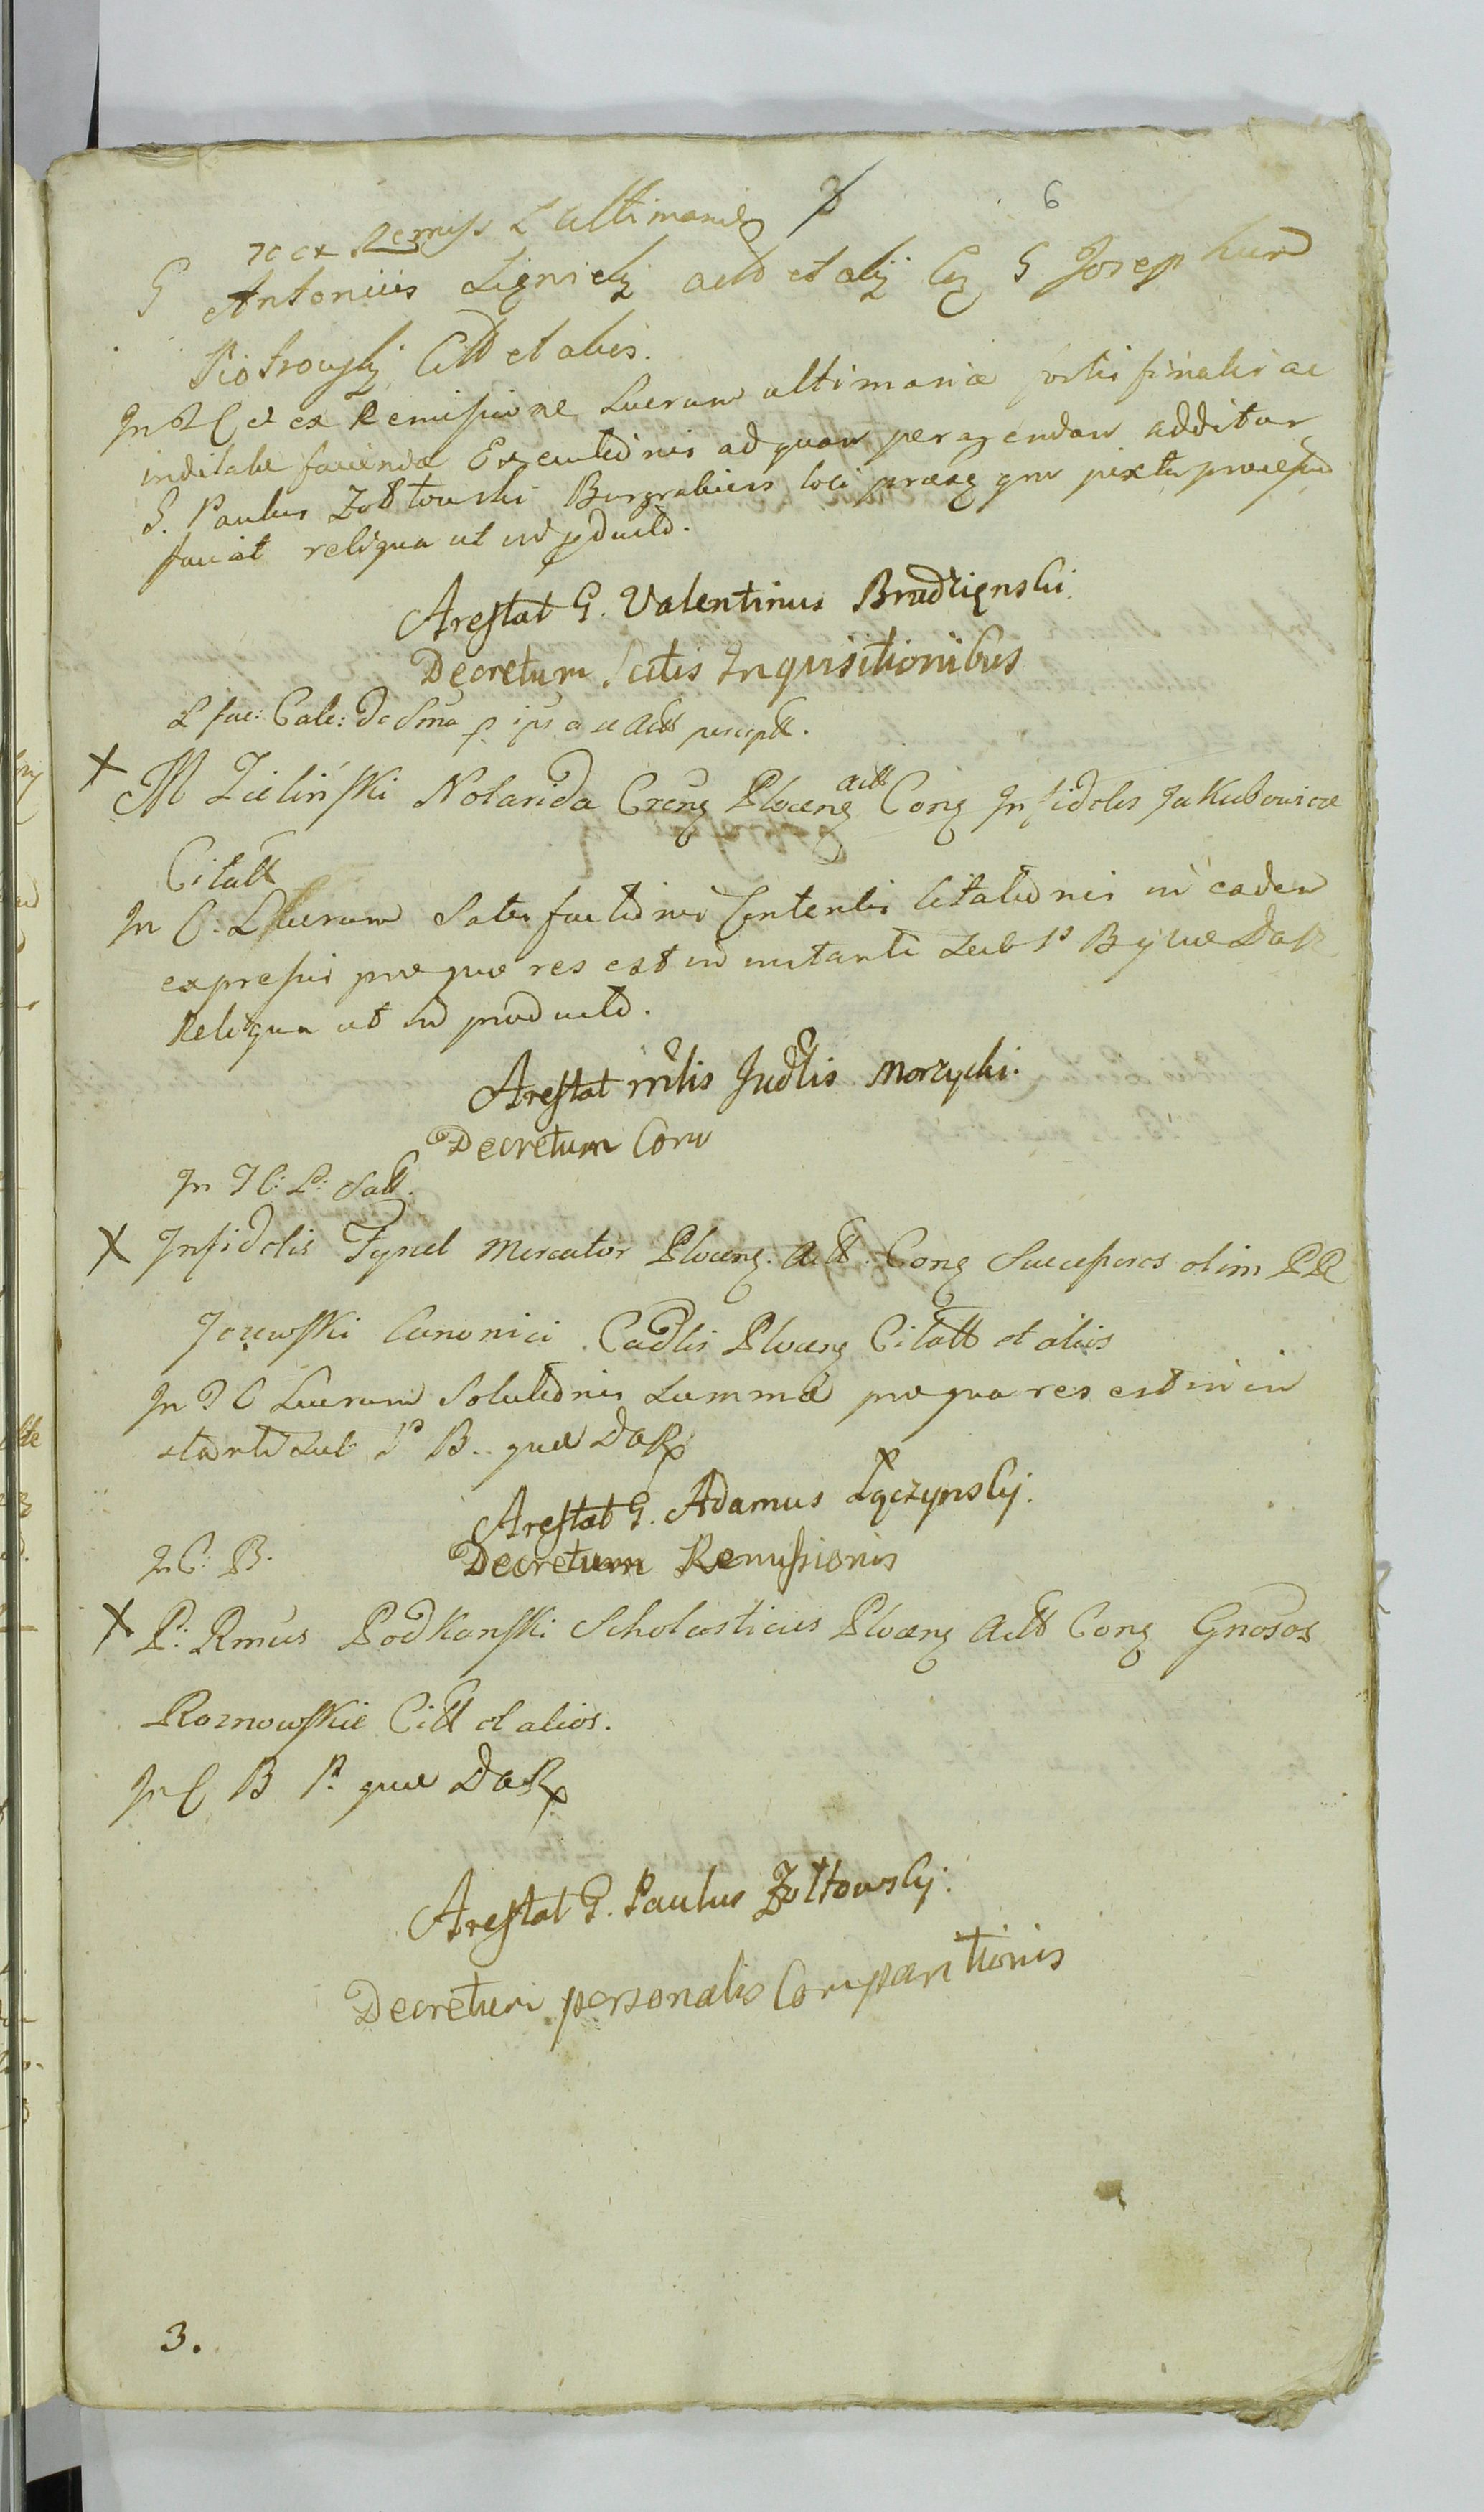 6
ex Remiss L ultimaniæ
G Antonius Ligniclj actt et alij Cq G Josephum
Piotrowskj Citt et alios.
In T C et ex Remissione Lucrum ultimaniæ portis finalis ac
inditate faciendæ Executionis ad quam peragendam additur
G. Paulus Zołtowski Burgrabius loci præsq qm juxta processum
faciat reliqua ut in producto.
Arestat G. Valentinus Brudzięnski.
Decretum Scitis Inquisitionibus
L fac: Cale: de Sma p ips a se actt percept.
X M Zieliński Notarida Crcng Ploceng actt Conq Infidelis Jakubowicz
Citatt
In C: Lucrum Satisfactionis Contentis Citationis in eadem
expressis præ quo res est in instanti sub Ps B quæ DaR
Reliqua ut in producto.
Arestat mtis Judlis Morzycki.
Decretum Conv
In T C: L: Satt.
X Infidelis Fyszel Mercator Plocng. Actt. Conq Successores olim PR
Jezewski Canonici Cadlis Plocng Citatt et alios
In T C Lucrum Solutionis Summæ præ qua res est in in
stanti sub Ps B. quæ DaR
Arestat G. Adamus Łączynskj.
In C: B. Decretum Remissionis
X P: Rmus Podkanski Scholasticus Plocng Actt Conq Gnosos
Roznowskie Citt et alios.
In C B P. quæ DaR
Arestat G. Paulus Zołtowskj.
Decretum personalis Comparitionis
3.